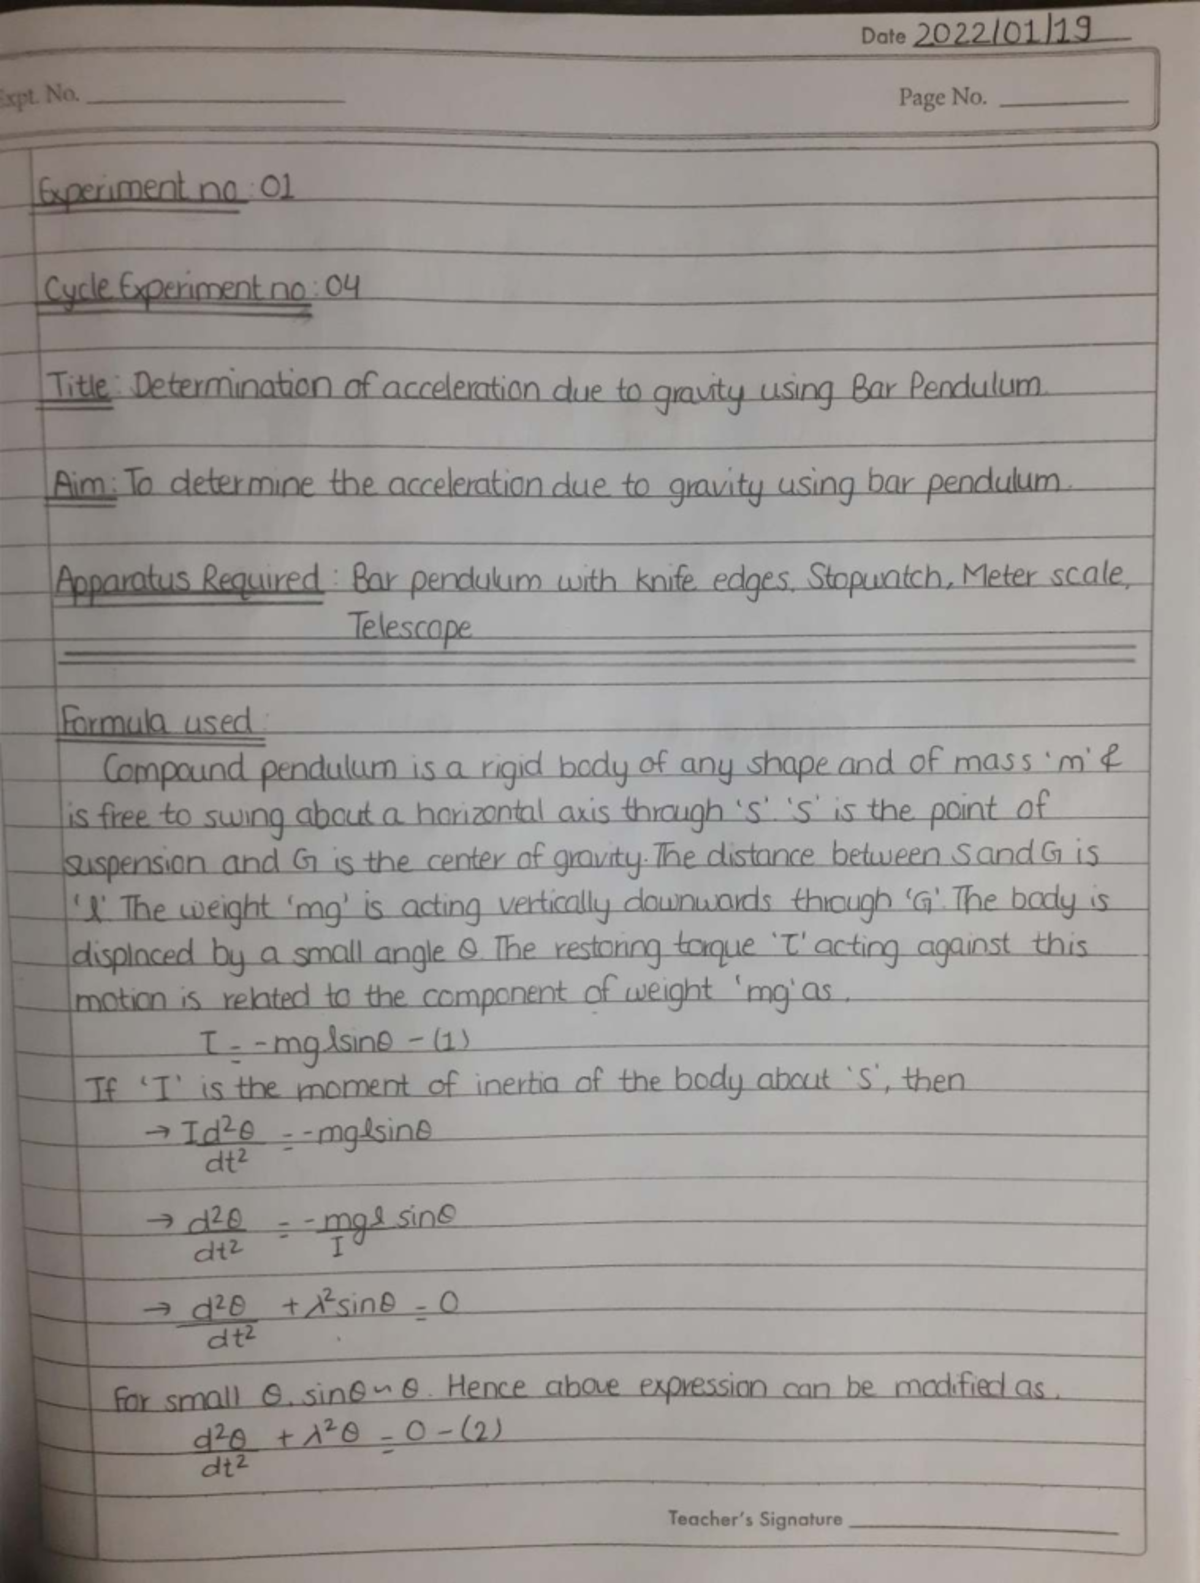 Date 2022/01/19
Expt. No.
Page No.
Experiment no: 01
Cycle Experiment no: 04
Title: Determination of acceleration due to gravity using Bar Pendulum.
Aim: To determine the acceleration due to gravity using bar pendulum.
Apparatus Required: Bar pendulum with knife edges, Stopwatch, Meter scale,
Telescope
Formula used:
Compound pendulum is a rigid body of any shape and of mass 'm' &
is free to swing about a horizontal axis through 'S'. 'S' is the point of
suspension and G is the center of gravity. The distance between S and G is
'l'. The weight 'mg' is acting vertically downwards through 'G'. The body is
displaced by a small angle θ. The restoring torque 'τ' acting against this
motion is related to the component of weight 'mg' as,
τ = -mglsinθ - (1)
If 'I' is the moment of inertia of the body about 'S', then
→ Id²θ = -mglsinθ
dt²
→ d²θ = -mgl sinθ
dt² I
→ d²θ + λ²sinθ = 0
dt²
For small θ, sinθ ~ θ. Hence above expression can be modified as,
d²θ + λ²θ = 0 - (2)
dt²
Teacher's Signature